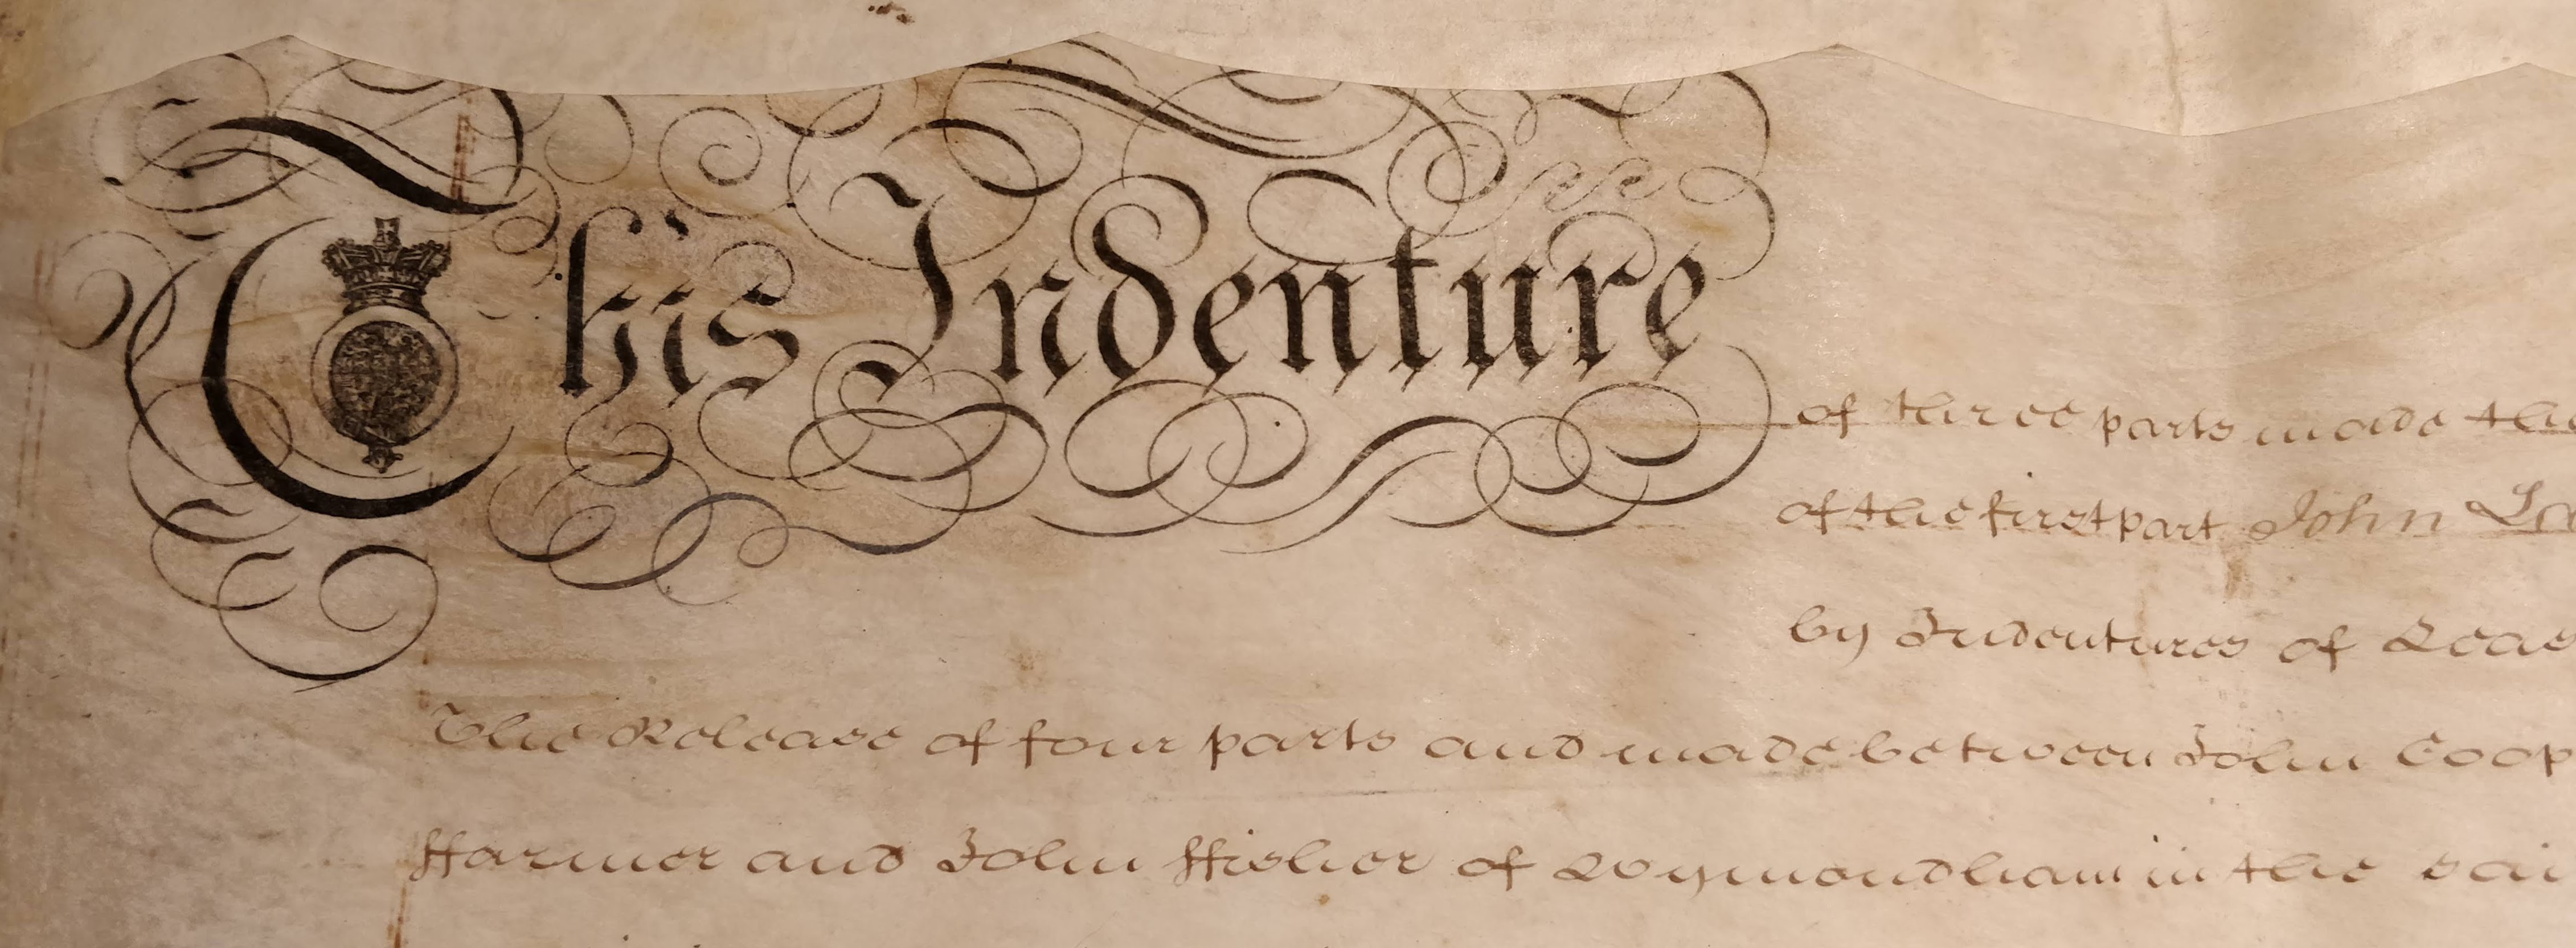 This Indenture
of three parts made the
of the first part John
by Indentures of Leas
The Release of four parts and made between John Coop
ffarmer and John ffisher of Wymondham in the sai